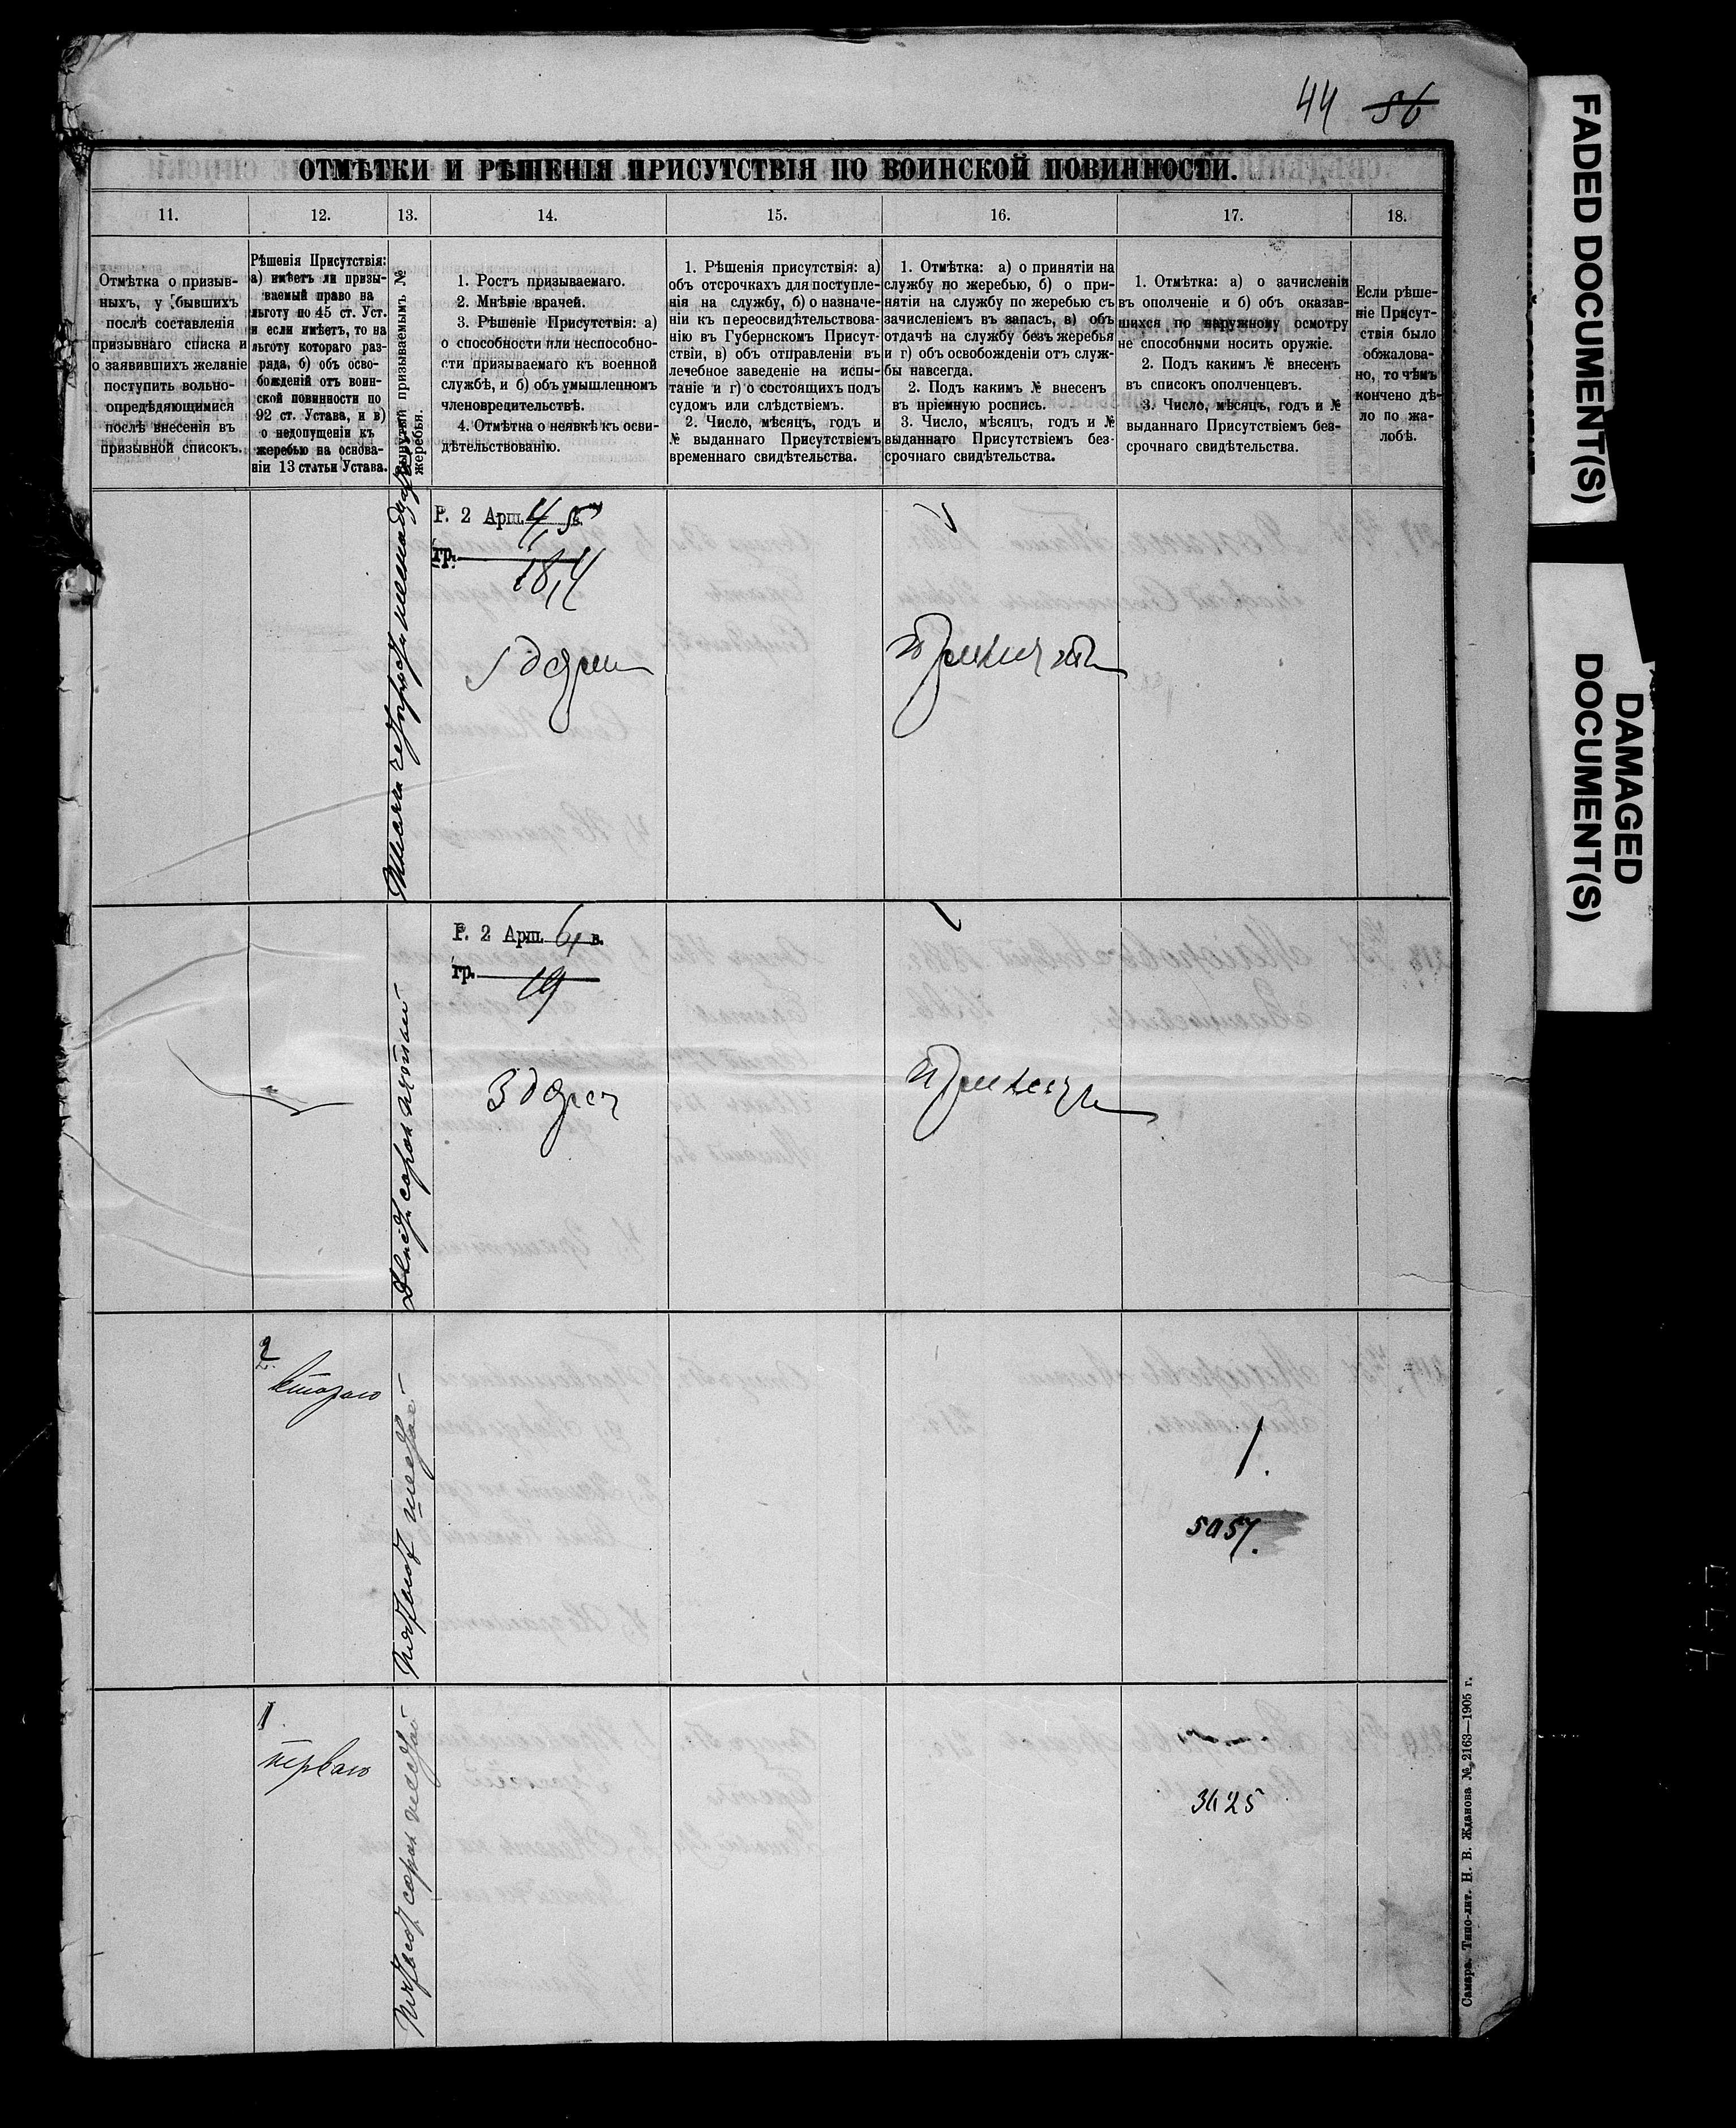 44 56
ОТМѢТКИ И РѢШЕНІЯ ПРИСУТСТВІЯ ПО ВОИНСКОЙ ПОВИННОСТИ.
11. 12. 13. 14. 15. 16. 17. 18.
Отмѣтка о призыв-
ныхъ, у бывшихъ
послѣ составленія
призывнаго списка и
о заявившихъ желаніе
поступить вольно-
опредѣляющимися
послѣ внесенія въ
призывной списокъ.
Рѣшенія Присутствія:
а) имѣетъ ли призы-
ваемый право на
льготу по 45 ст. Уст.
и если имѣетъ, то на
льготу котораго раз-
ряда, б) объ осво-
божденій отъ воин-
ской повинности по
92 ст. Устава, и в)
о недопущеніи къ
жеребью на основа-
ніи 13 статьи Устава.
Вынутый призываемымъ №
жеребья.
1. Ростъ призываемаго.
2. Мнѣніе врачей.
3. Рѣшеніе Присутствія: а)
о способности или неспособно-
сти призываемаго къ военной
службѣ, и б) объ умышленномъ
членовредительствѣ.
4. Отмѣтка о неявкѣ къ осви-
дѣтельствованію.
1. Рѣшенія присутствія: а)
объ отсрочкахъ для поступле-
нія на службу, б) о назначе-
ніи къ переосвидѣтельствова-
нію въ Губернскомъ Присут-
ствіи, в) объ отправленіи въ
лечебное заведеніе на испы-
таніе и г) о состоящихъ подъ
судомъ или слѣдствіемъ.
2. Число, мѣсяцъ, годъ и
№ выданнаго Присутствіемъ
временнаго свидѣтельства.
1. Отмѣтка: а) о принятіи на
службу по жеребью, б) о при-
нятіи на службу по жеребью съ
зачисленіемъ въ запасъ, в) объ
отдачѣ на службу безъ жеребья
и г) объ освобожденіи отъ служ-
бы навсегда.
2. Подъ какимъ № внесенъ
въ пріемную роспись.
3. Число, мѣсяцъ, годъ и №
выданнаго Присутствіемъ без-
срочнаго свидѣтельства.
1. Отмѣтка: а) о зачисленіи
въ ополченіе и б) объ оказав-
шихся по наружному осмотру
не способными носить оружіе.
2. Подъ какимъ № внесенъ
въ списокъ ополченцевъ.
3. Число, мѣсяцъ, годъ и №
выданнаго Присутствіемъ без-
срочнаго свидѣтельства.
Если рѣше-
ніе Присут-
ствія было
обжалова-
но, то чѣмъ
кончено дѣ-
ло по жа-
лобѣ.
Р. 2 Арш. 4,5 в.
гр. 18,4
Здоров
Принять
Двести сорок пятый
Р. 2 Арш. 6, в.
гр. 19
Здоров
Принять
2.
втораго
Пятьсот шестой
1.
5057.
1.
перваго
Пятьсот сорок шестой
3425
Самара. Типо-лит. Н. В. Жданова № 2163—1905 г.
FADED DOCUMENT(S)
DAMAGED
DOCUMENT(S)